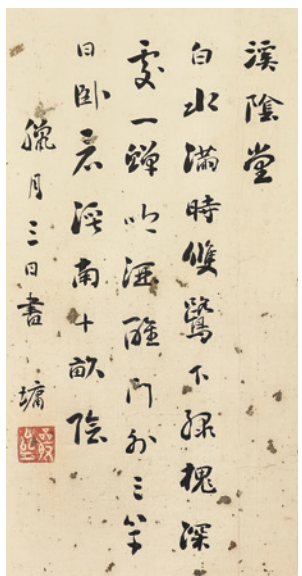 溪陰堂
白水滿時雙鷺下綠槐深
處一蟬吟酒醒門外三竿
日臥看溪南十畝陰
臘月三日書 墉